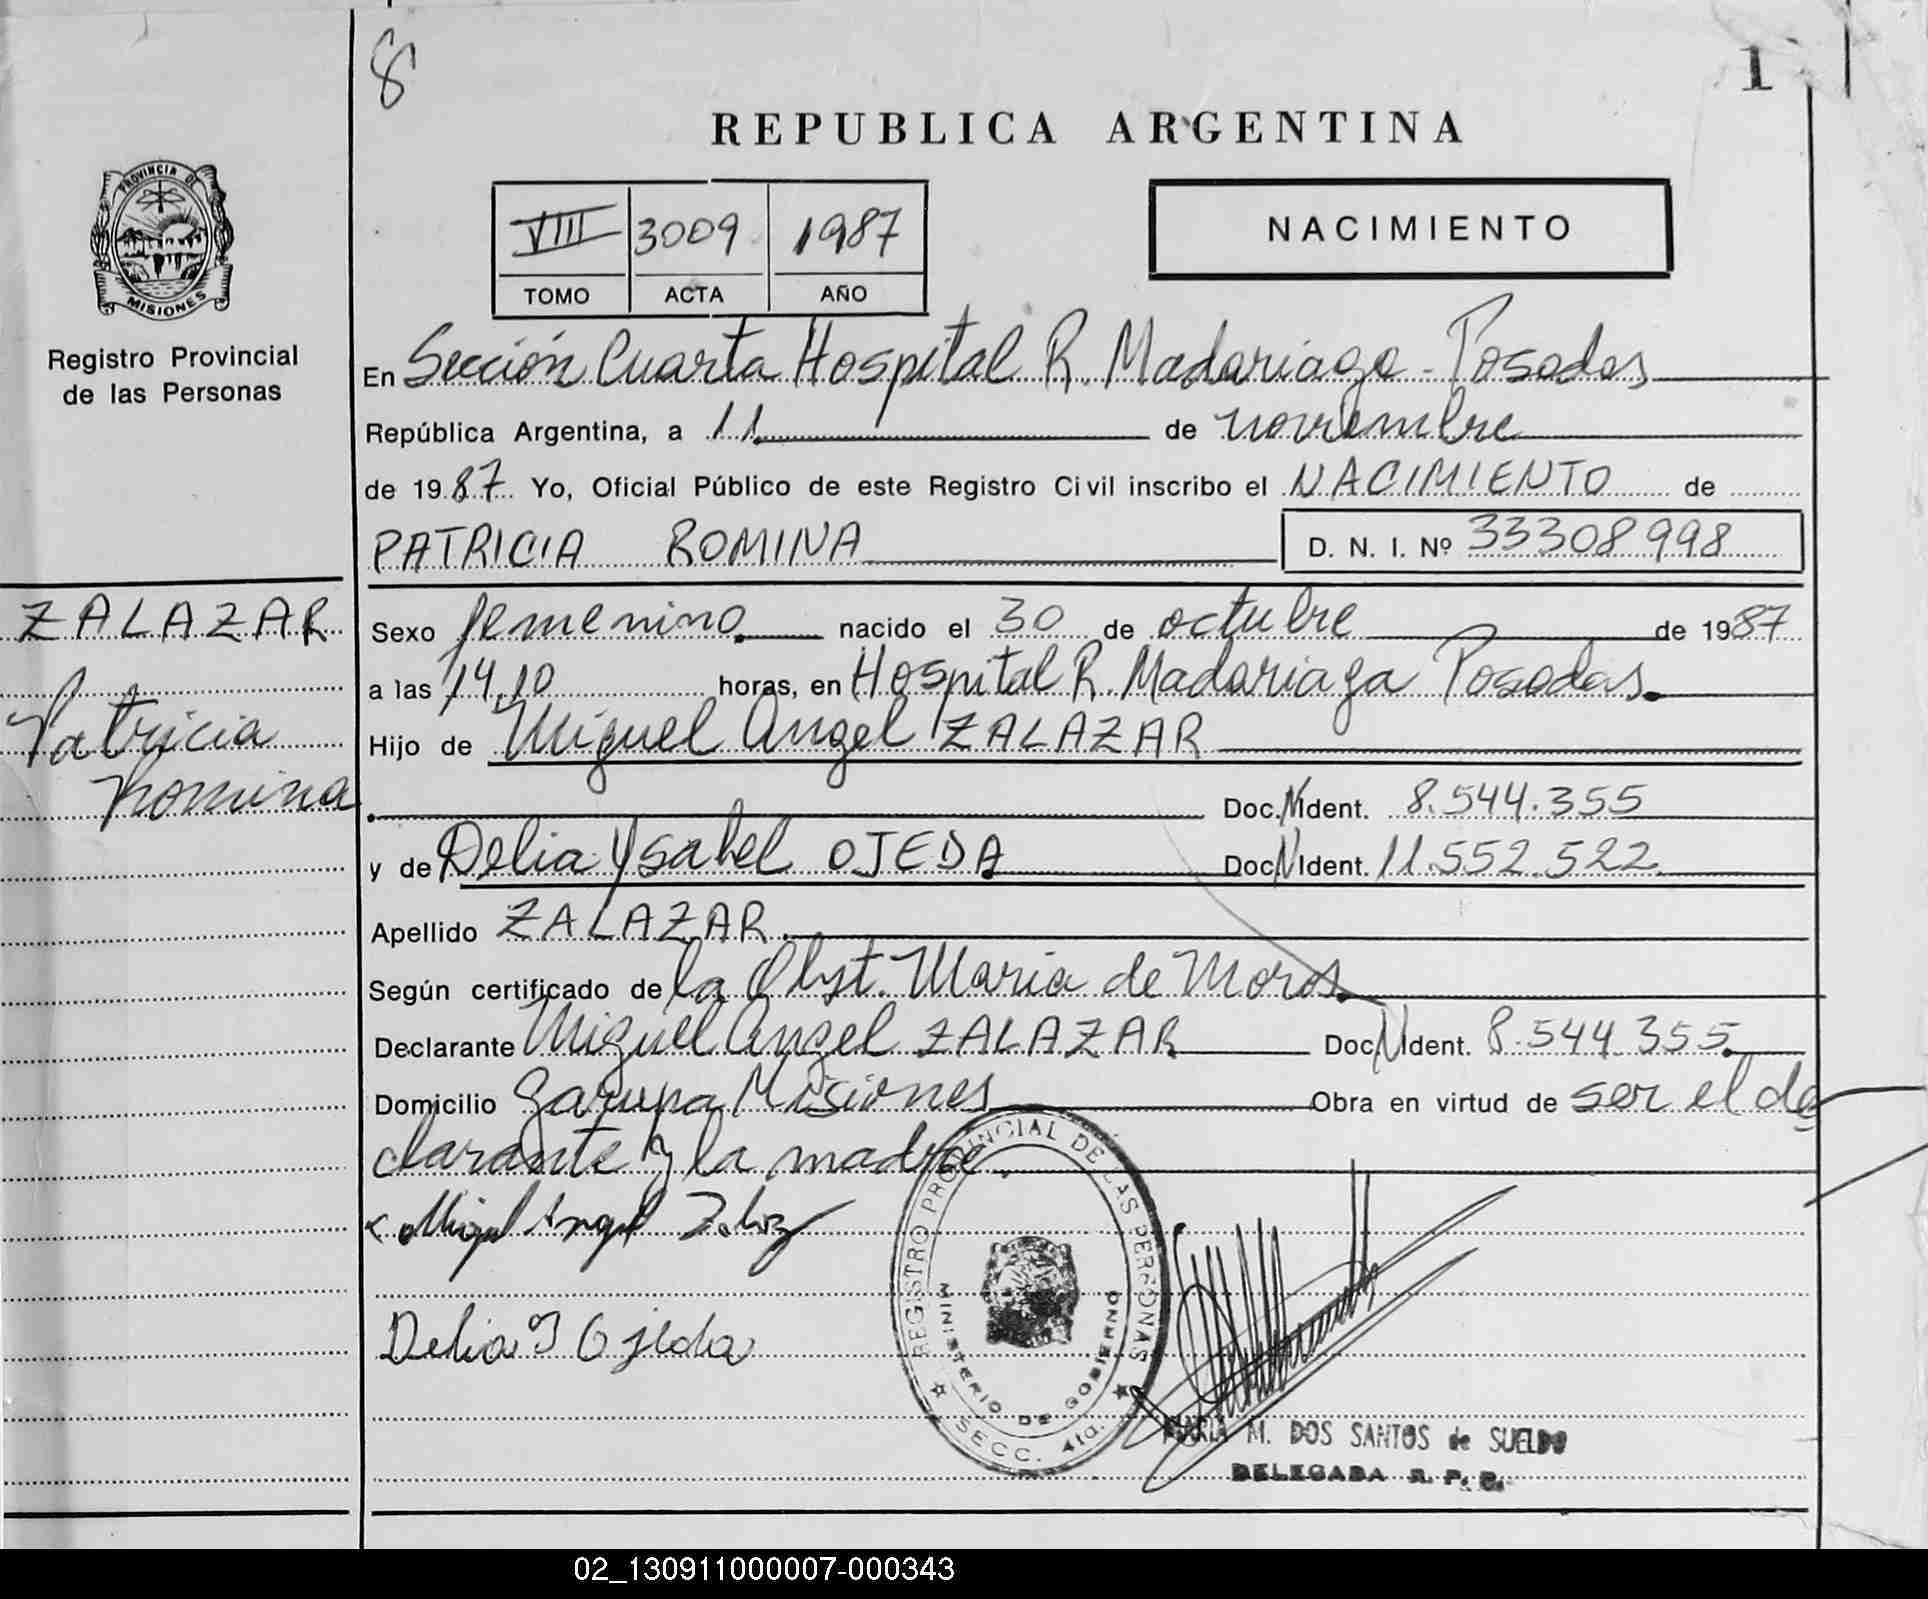 8
1
REPUBLICA ARGENTINA
PROVINCIA DE
MISIONES
Registro Provincial
de las Personas
VIII 3009 1987
TOMO ACTA AÑO
NACIMIENTO
En Sección Cuarta Hospital R. Madariaga - Posadas
República Argentina, a 11 de noviembre
de 1987 Yo, Oficial Público de este Registro Civil inscribo el NACIMIENTO de
PATRICIA ROMINA
D. N. I. Nº 33308998
ZALAZAR
Patricia
Romina
Sexo femenino nacido el 30 de octubre de 1987
a las 14,10 horas, en Hospital R. Madariaga Posadas.
Hijo de Miguel Angel ZALAZAR
Doc. N Ident. 8.544.355
y de Delia Ysabel OJEDA Doc N Ident. 11.552.522
Apellido ZALAZAR
Según certificado de la Obst. Maria de Moros
Declarante Miguel Angel ZALAZAR Doc N Ident. 8.544.355
Domicilio Garupa Misiones Obra en virtud de ser el de
clarante y la madre
Miguel Angel
Delia Y Ojeda
REGISTRO PROVINCIAL DE LAS PERSONAS
MINISTERIO DE GOBIERNO
SECC. 4ta.
MARIA M. DOS SANTOS de SUELDO
DELEGADA R. P. P.
02_130911000007-000343